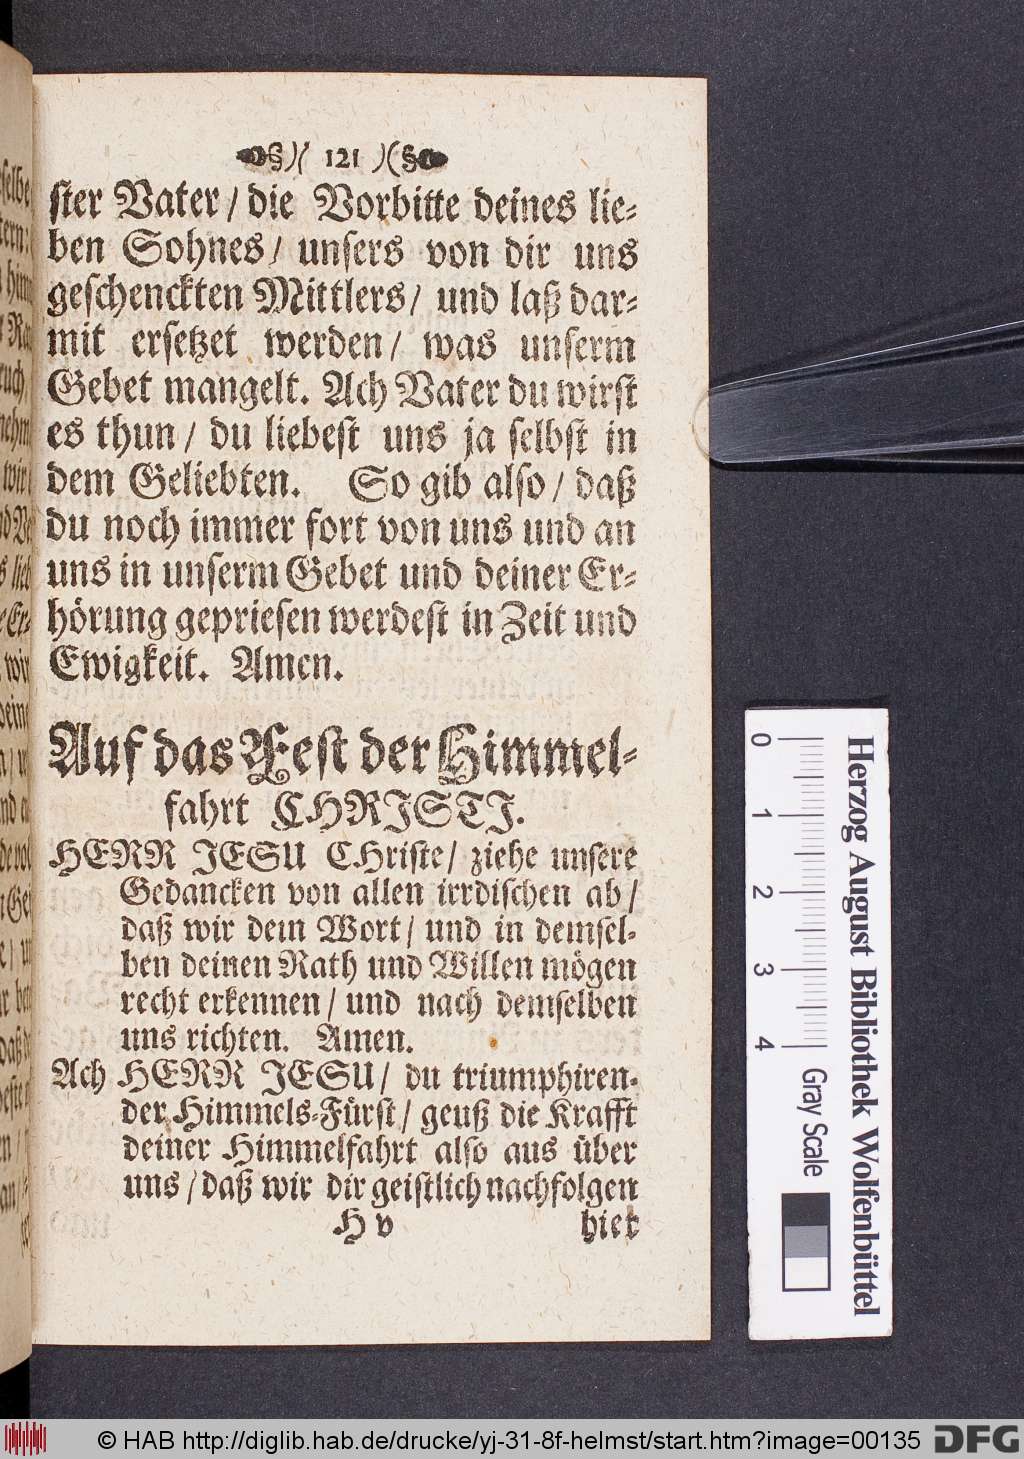 )( 121 )(
ster Vater / die Vorbitte deines lie-
ben Sohnes / unsers von dir uns
geschenckten Mittlers / und laß dar-
mit ersetzet werden / was unserm
Gebet mangelt. Ach Vater du wirst
es thun / du liebest uns ja selbst in
dem Geliebten. So gib also / daß
du noch immer fort von uns und an
uns in unserm Gebet und deiner Er-
hörung gepriesen werdest in Zeit und
Ewigkeit. Amen.
Auf das Fest der Himmel-
fahrt CHRISTI.
HERR JESU CHriste / ziehe unsere
Gedancken von allen irrdischen ab /
daß wir dem Wort / und in demsel-
ben deinen Rath und Willen mögen
recht erkennen / und nach demselben
uns richten. Amen.
Ach HERR JESU / du triumphiren-
der Himmels-Fürst / geuß die Krafft
deiner Himmelfahrt also aus über
uns / daß wir dir geistlich nachfolgen
H v hier
0 1 2 3 4 Gray Scale
Herzog August Bibliothek Wolfenbüttel
© HAB http://diglib.hab.de/drucke/yj-31-8f-helmst/start.htm?image=00135 DFG